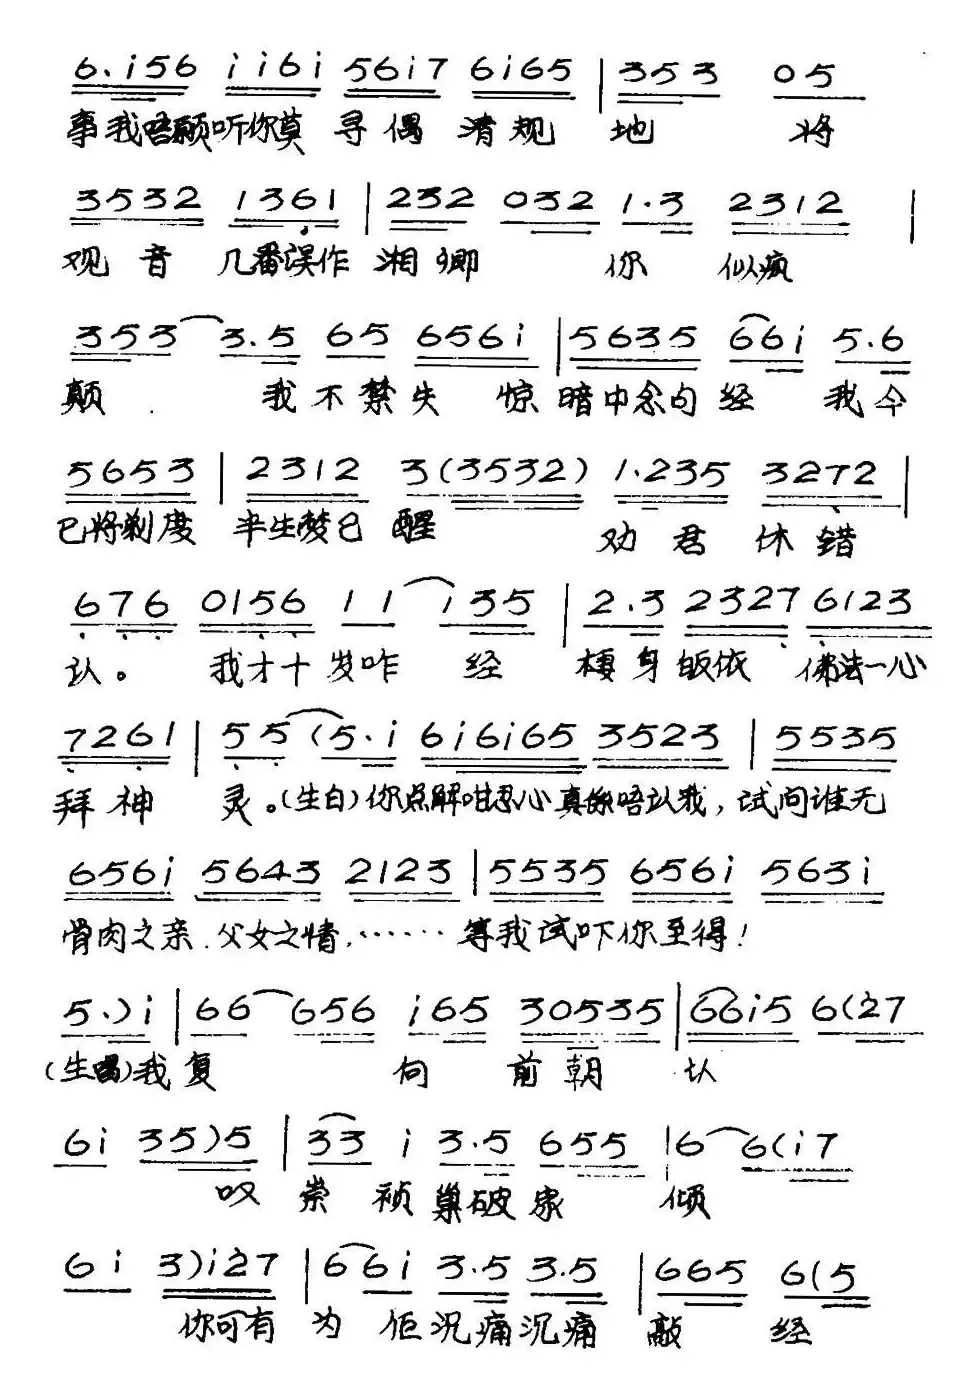 6.i56 ii6i 56i7 6i65 | 353 05
事我唔愿听你莫 寻偶 清规 地 将
3532 1361 | 232 032 1.3 2312 |
观音 几番误作 湘卿 你 似疯
353 3.5 65 656i | 5635 66i 5.6
颠. 我不禁失 惊暗中念句经 我今
5653 | 2312 3(3532) 1.235 3272 |
已将剃度 半生梦已醒 劝君休错
676 0156 11 135 | 2.3 2327 6123
认。 我才十岁咋 经 栖身皈依 佛法一心
7261 | 55(5.i 6i6i65 3523 | 5535
拜神 灵。(生白)你点解咁忍心真系唔认我，试问谁无
656i 5643 2123 | 5535 656i 563i
骨肉之亲.父女之情,……等我试吓你至得!
5.)i | 66 656 i65 30535 | 66i5 6(27
(生唱)我复 向 前朝 认
6i 35)5 | 33 i 3.5 655 | 6 6(i7
叹 崇 祯巢破家 倾
6i 3)i27 | 66i 3.5 3.5 | 665 6(5
你可有 为 佢沉痛沉痛 敲 经